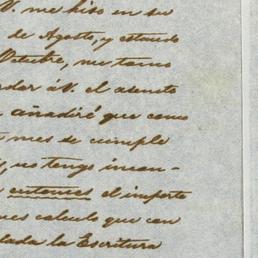 V. me hizo en su
de Agosto, y estando
Octubre, me tomo
á V. el asunto
añadiré que como
mes de cumple
no tengo incon-
entonces el importe
calculo que con
la Escritura